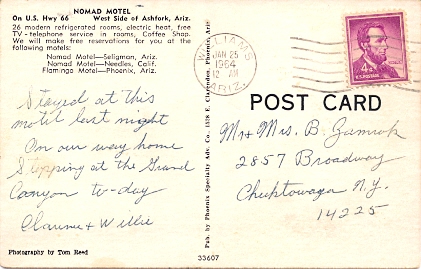 NOMAD MOTEL
On U.S. Hwy 66 West Side of Ashfork, Ariz.
26 modern refrigerated rooms, electric heat, free
TV - telephone service in rooms, Coffee Shop.
We will make free reservations for you at the
following motels:
Nomad Motel—Seligman, Ariz.
Nomad Motel—Needles, Calif.
Flamingo Motel—Phoenix, Ariz.
Stayed at this
motel last night
On our way home
Stopping at the Grand
Canyon to-day
Clarence + Willie
Photography by Tom Reed
Pub. by Phoenix Specialty Adv. Co. 1528 E. Clarendon, Phoenix, Ariz.
WILLIAMS
JAN 25
1964
12 AM
ARIZ.
4¢
U.S. POSTAGE
POST CARD
Mr + Mrs. B. Zamrok
2857 Broadway
Chuktowaga N.Y.
14225
33607